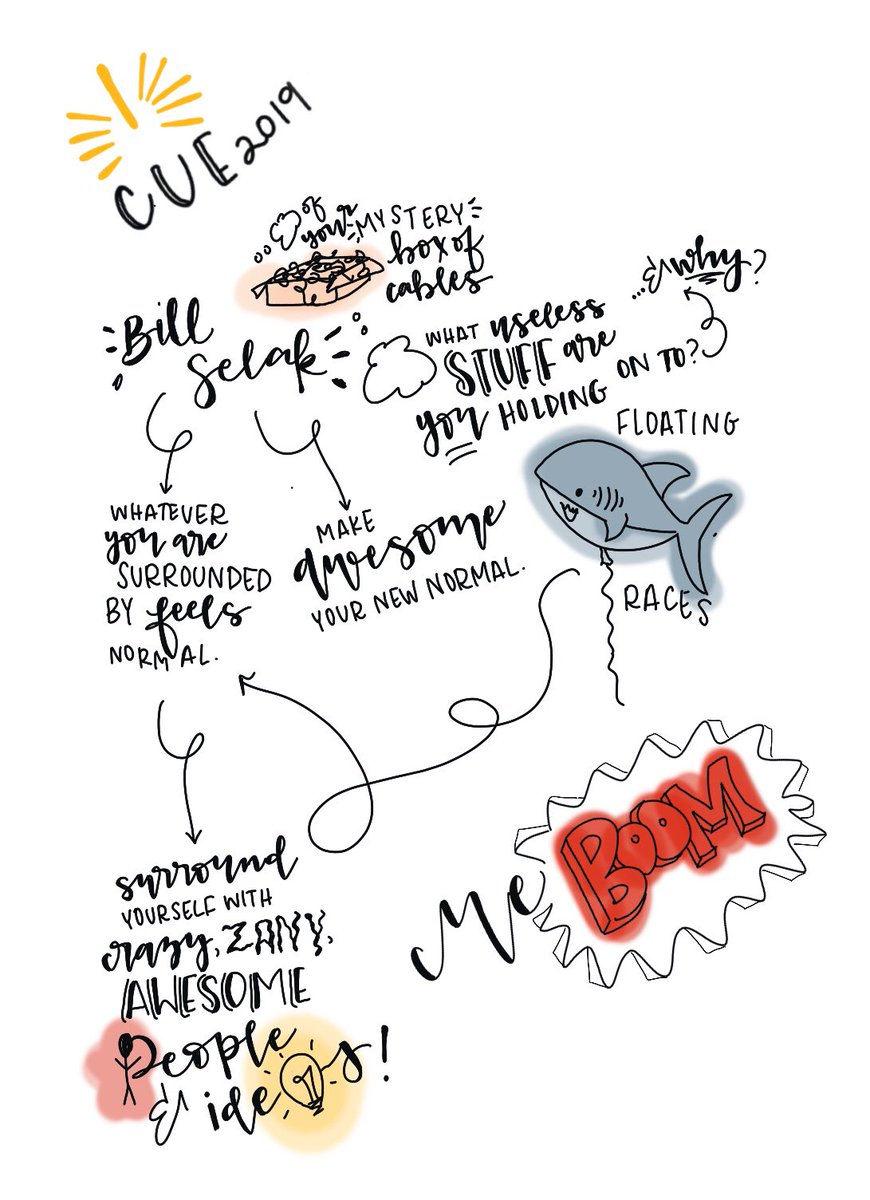 CUE 2019
of
your MYSTERY
box of
cables
Bill
Selak
... & why?
WHAT useless
STUFF are
you HOLDING ON TO?
FLOATING
RACES
WHATEVER
you are
SURROUNDED
BY feels
NORMAL.
MAKE
awesome
YOUR NEW NORMAL.
surround
YOURSELF WITH
crazy, ZANY,
AWESOME
People
& ideas!
Me
BOOM